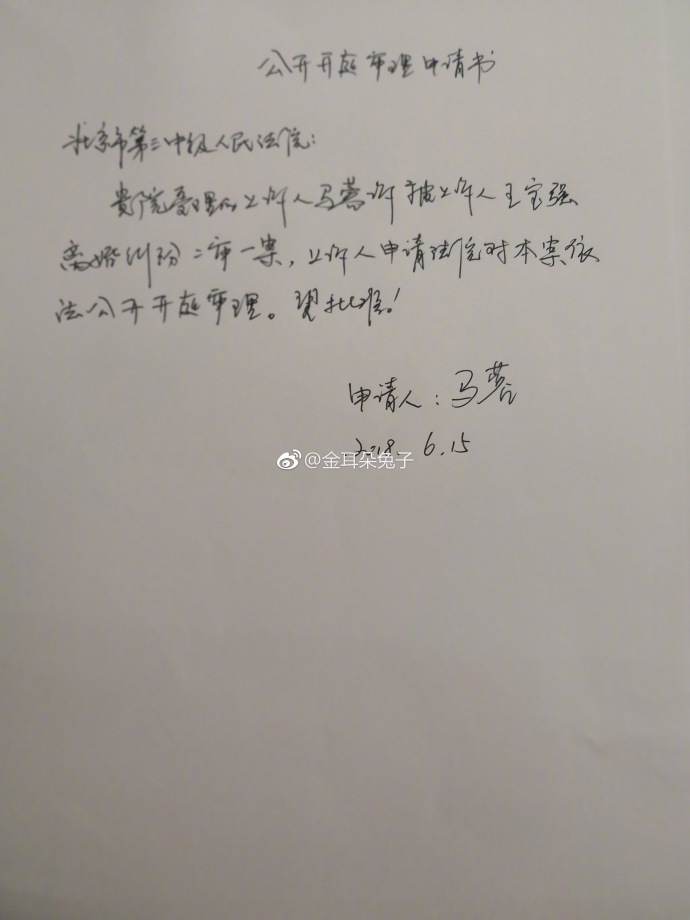 公开开庭审理申请书
北京市第三中级人民法院：
贵院受理的上诉人马蓉诉被上诉人王宝强
离婚纠纷二审一案，上诉人申请法院对本案依
法公开开庭审理。望批准！
申请人：马蓉
2018.6.15
@金耳朵兔子